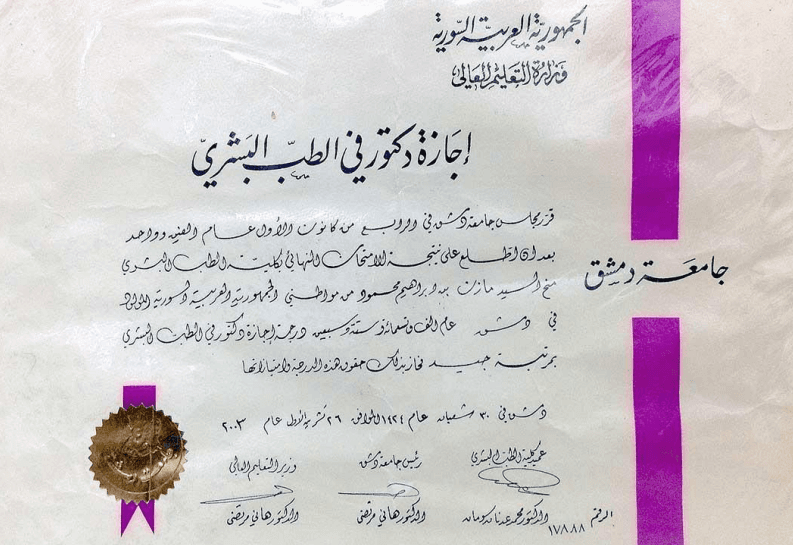 الجمهورية العربية السورية
وزارة التعليم العالي
إجازة دكتور في الطب البشري
جامعة دمشق
قرر مجلس جامعة دمشق في الرابع من كانون الأول عام الفين وواحد
بعد ان اطلع على نتيجة الامتحان النهائي لكلية الطب البشري
منح السيد مازن بن ابراهيم محمود من مواطني الجمهورية العربية السورية المولود
في دمشق عام الف وتسعمائة وستة وسبعين درجة إجازة دكتور في الطب البشري
بمرتبة جيد فنال بذلك حقوق هذه الدرجة وامتيازاتها
دمشق في ٣٠ شعبان عام ١٤٢٤ الموافق ٢٦ تشرين الأول عام ٢٠٠٣
عميد كلية الطب البشري رئيس جامعة دمشق وزير التعليم العالي
الدكتور محمد عدنان سومان الدكتور هاني مرتضى الدكتور هاني مرتضى
الرقم ١٧٨٨٨